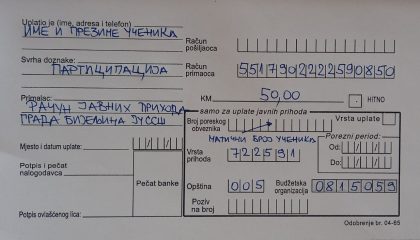 Uplatio je (ime, adresa i telefon)
ИМЕ И ПРЕЗИМЕ УЧЕНИКА
Svrha doznake:
ПАРТИЦИПАЦИЈА
Primalac:
РАЧУН ЈАВНИХ ПРИХОДА
ГРАДА БИЈЕЉИНА ЈУССШ
Mjesto i datum uplate:
Potpis i pečat
nalogodavca:
Pečat banke
Potpis ovlašćenog lica:
Račun
pošiljaoca
Račun
primaoca
5517902222590850
KM
50,00
HITNO
samo za uplate javnih prihoda
Vrsta uplate
Broj poreskog
obveznika
МАТИЧНИ БРОЈ УЧЕНИКА
Vrsta
prihoda
722591
Poreski period:
Od:
Do:
Opština
005
Budžetska
organizacija
0815059
Poziv
na broj
Odobrenje br. 04-65